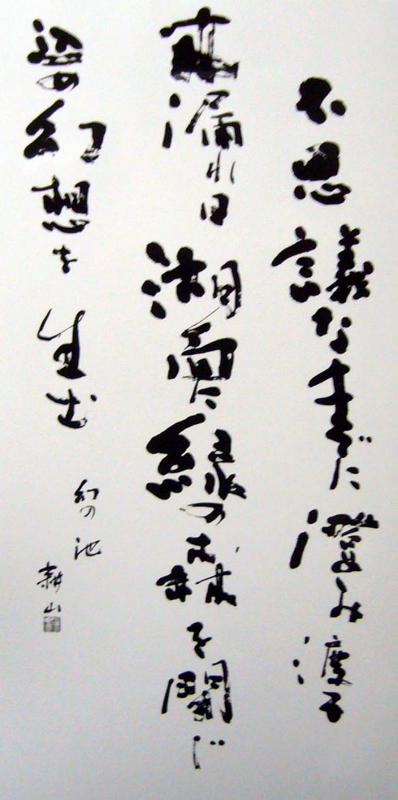 不思議なまでに澄み渡る
漏れ日湖面に緑の森を閉じ
幻想を生む
幻の池
耕山